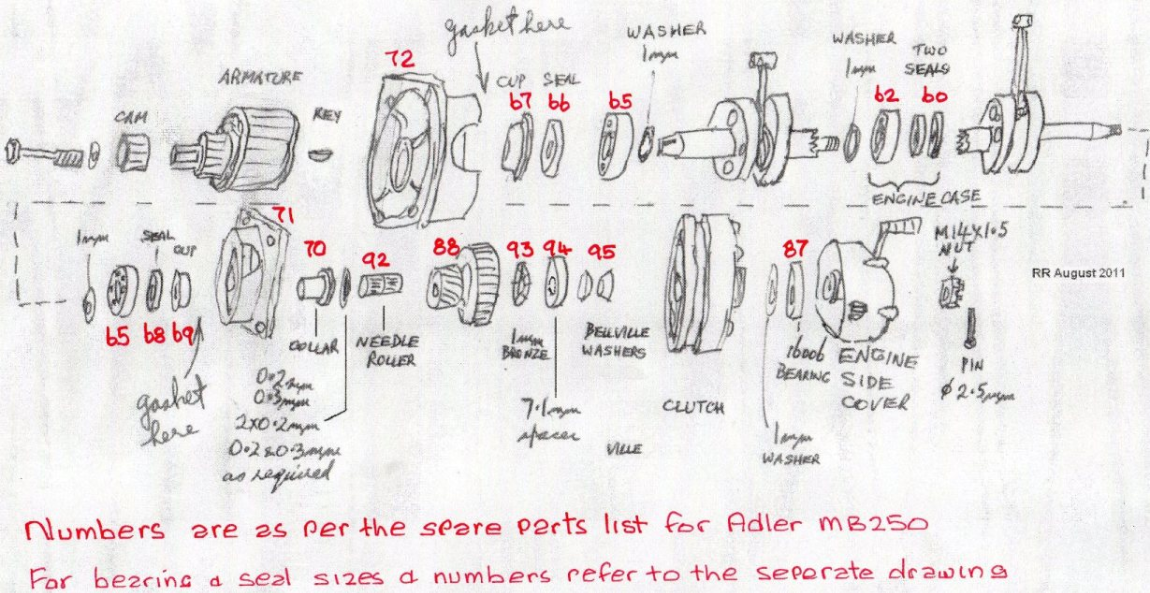 gasket here
72
WASHER
1mm
WASHER
1mm
TWO
SEALS
ARMATURE
CUP
SEAL
67
66
65
62
60
CAM
KEY
ENGINE CASE
71
1mm
SEAL
CUP
70
92
88
93
94
95
87
M14X1.5
NUT
RR August 2011
65
68
69
COLLAR
NEEDLE
ROLLER
1mm
BRONZE
BELLVILLE
WASHERS
16006
BEARING
ENGINE
SIDE
COVER
PIN
Ø 2.5mm
gasket
here
0.2mm
0.3mm
2X0.2mm
0.2 & 0.3mm
as required
7.1mm
spacer
CLUTCH
VILLE
1mm
WASHER
Numbers are as per the spare parts list for Adler MB250
For bearing & seal sizes & numbers refer to the seperate drawing